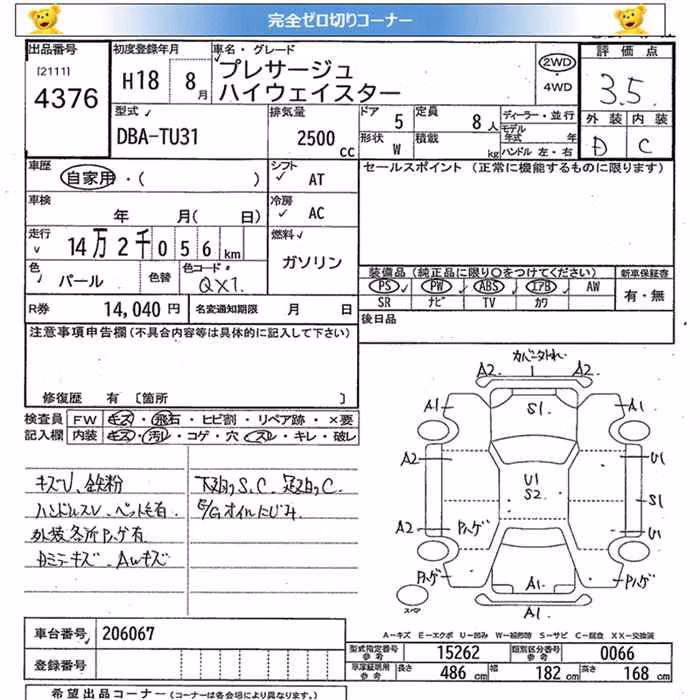 完全ゼロ切りコーナー
出品番号
[2111]
4376
初度登録年月
H18 8月
車名・グレード
プレサージュ
ハイウェイスター
2WD
・
4WD
評価点
3.5
外装 内装
D C
型式
DBA-TU31
排気量
2500 cc
ドア 5
定員 8人
形状 W
積載 kg
ディーラー・並行
モデル年式 年
ハンドル 左・右
車歴
自家用・( )
シフト
AT
セールスポイント (正常に機能するものに限ります)
車検
年 月( 日)
冷房
AC
走行
14万2千056km
燃料
ガソリン
色
パール
色替
色コード
QX1
装備品(純正品に限り○をつけてください)
PS PW ABS エアB AW
SR ナビ TV カワ
新車保証書
有・無
R券 14,040円
名変通知期限 月 日
後日品
注意事項申告欄(不具合内容等は具体的に記入して下さい)
修復歴 有 〔箇所 〕
検査員
記入欄
FW キズ・飛石・ヒビ割・リペア跡・×要
内装 キズ・汚レ・コゲ・穴・スレ・キレ・破レ
キズU、鉄粉
ハンドルスレ、ペット毛有
外装各所Pハゲ有
Dミラーキズ、AWキズ
下廻りS,C,足廻りC
E/Gオイルにじみ
A2 A2
A1 S1 A1
A2 U1
U1
S2
S1
A2 Pハゲ U1
Pハゲ A1 Pハゲ
スペア
A1
A-キズ E-エクボ U-凹み W-補修跡 S-サビ C-腐食 XX-交換済
車台番号 206067
登録番号
型式指定番号参考 15262
類別区分番号参考 0066
車庫証明用参考 長さ 486cm 幅 182cm 高さ 168cm
希望出品コーナー(コーナーは各会場により異なります。)